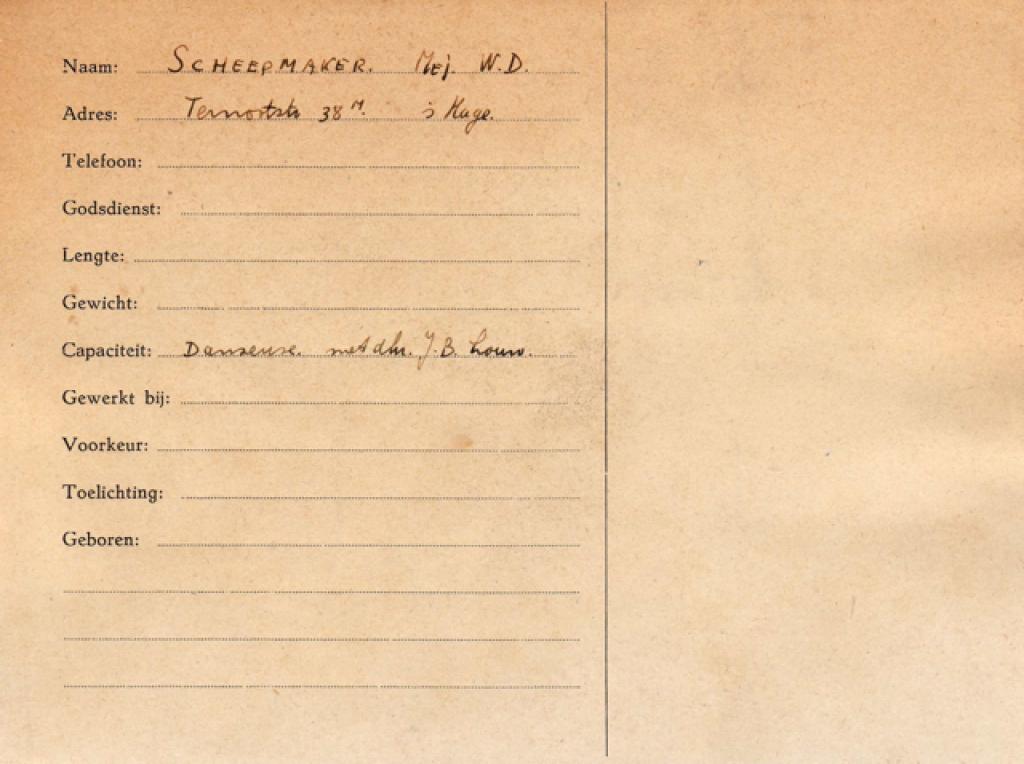 Naam: SCHEEPMAKER. Mej. W.D.
Adres: 38 M. 's Hage.
Telefoon:
Godsdienst:
Lengte:
Gewicht:
Capaciteit: Danseuse. met dhr. J.B. Louw.
Gewerkt bij:
Voorkeur:
Toelichting:
Geboren: